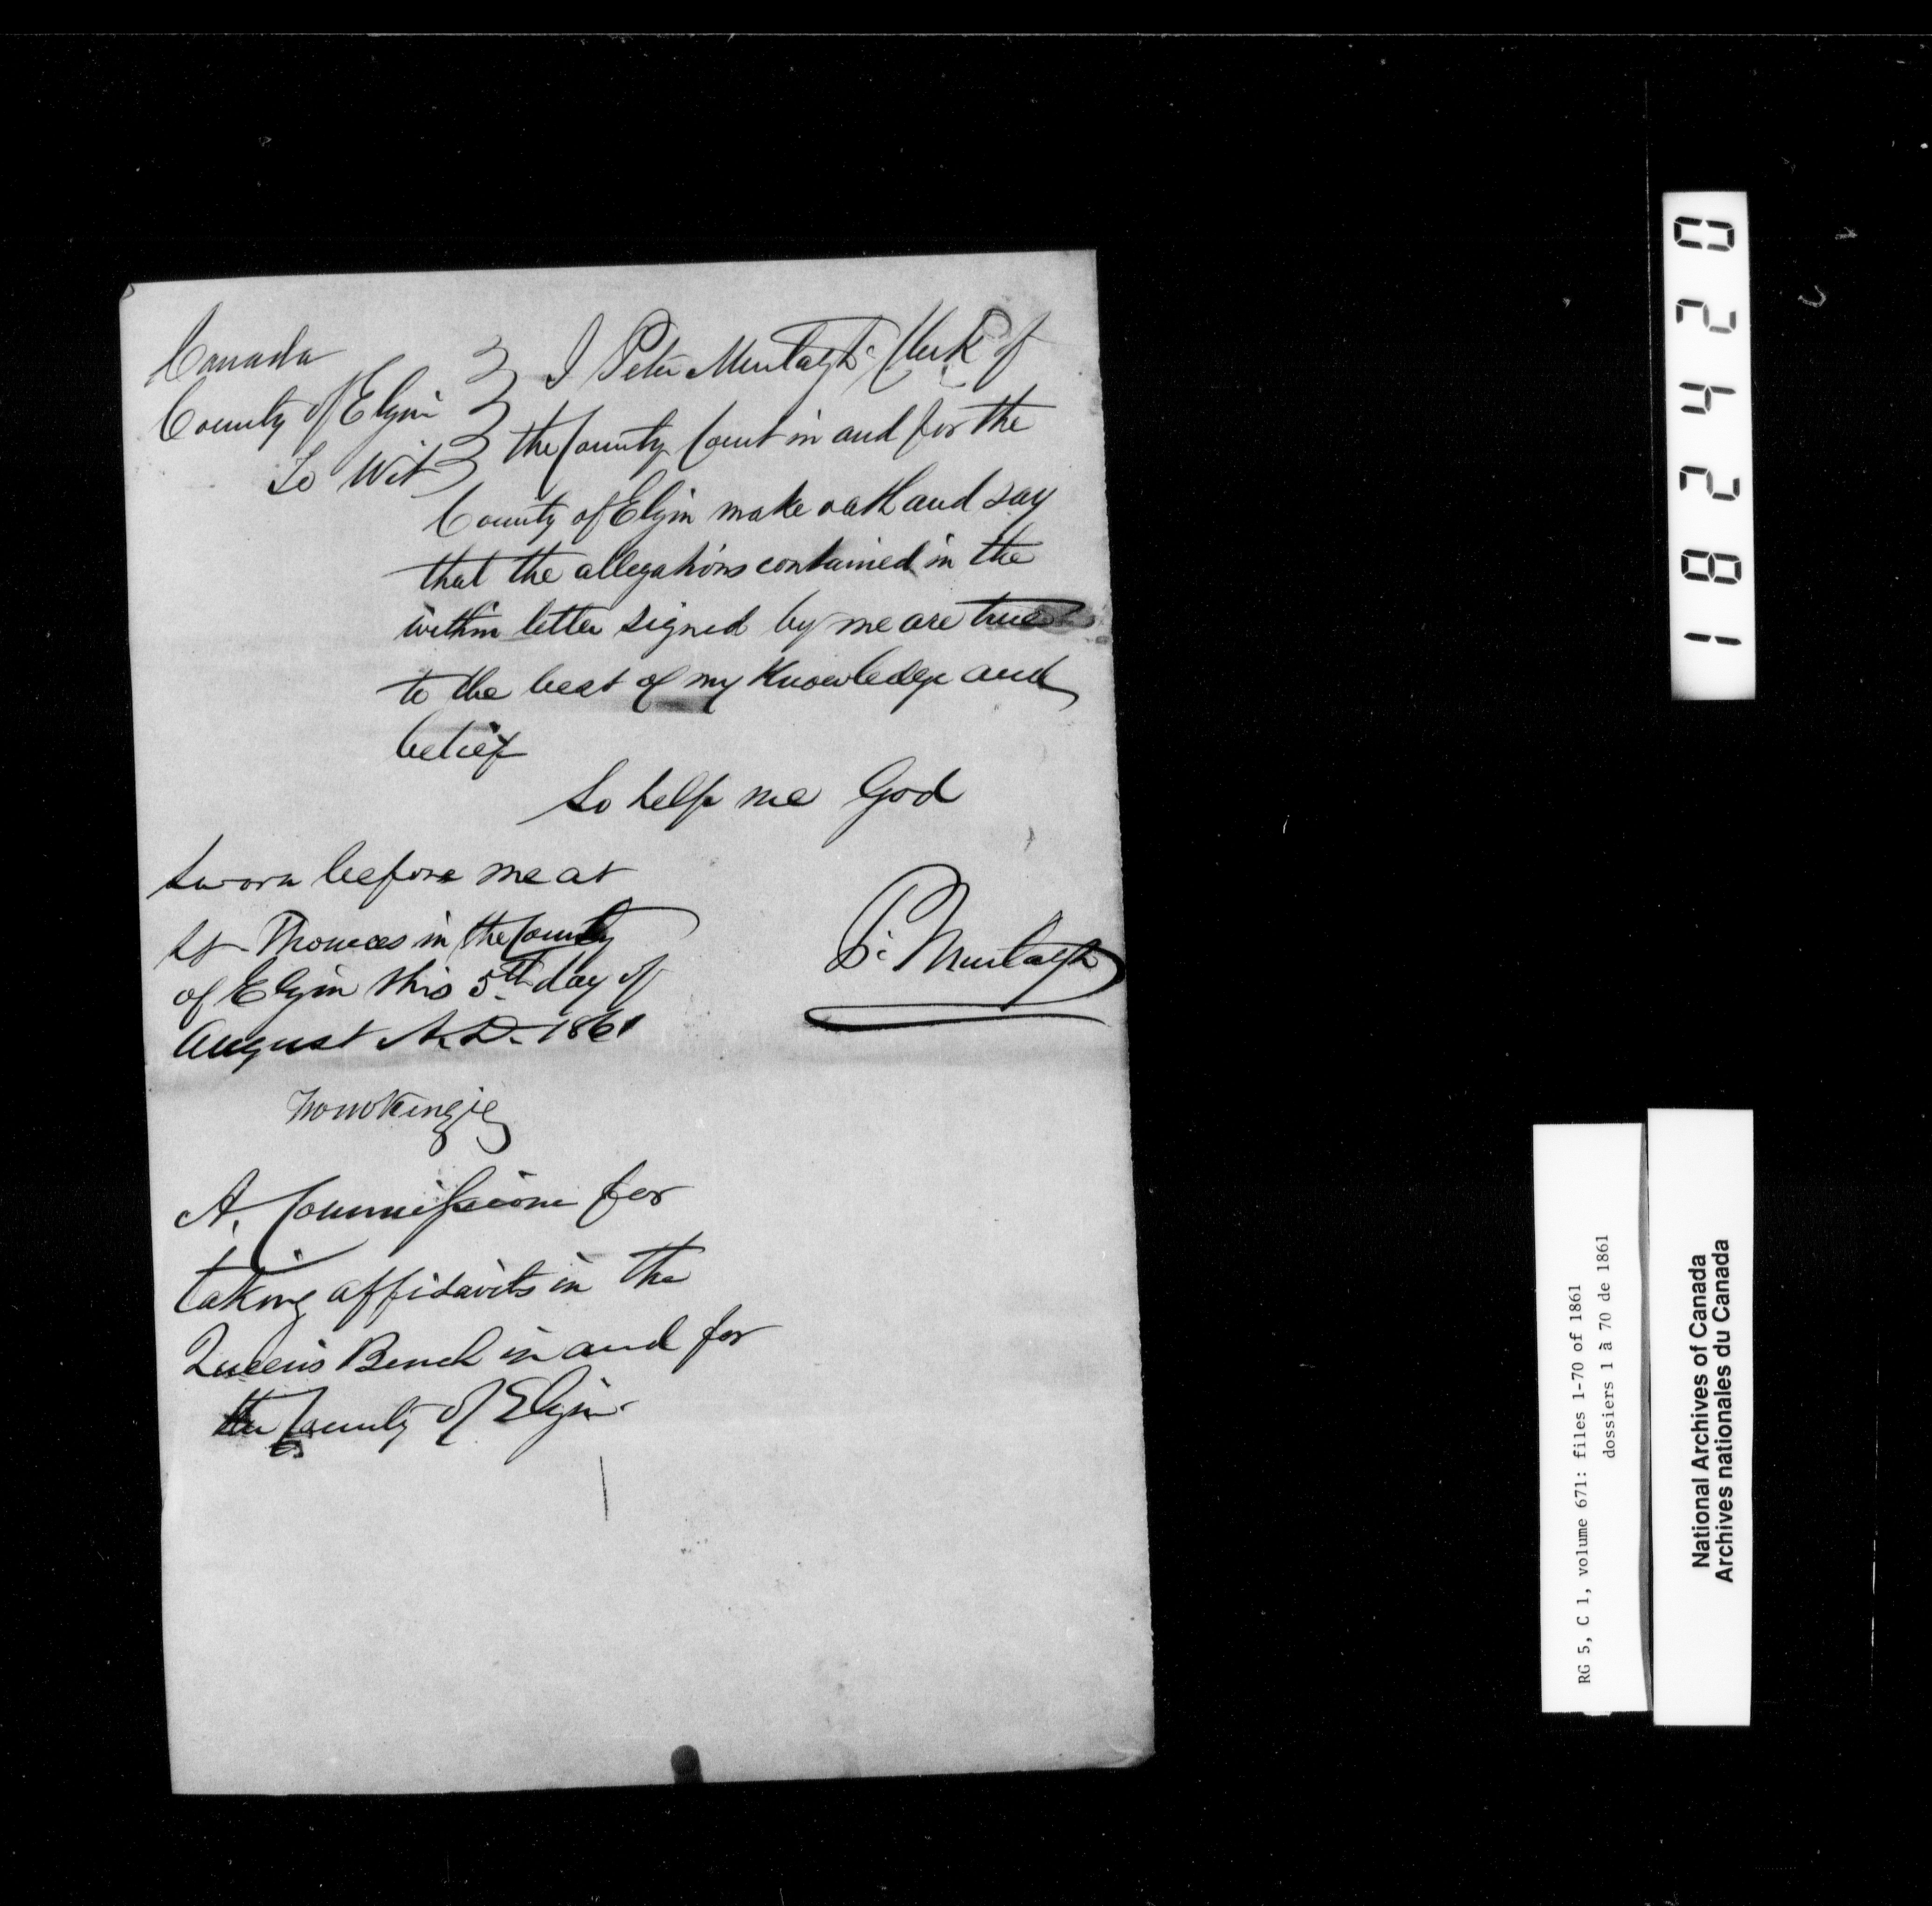 Canada
County of Elgin
To Wit
I Peter Murtagh Clerk of
the County Court in and for the
County of Elgin make oath and say
that the allegations contained in the
within letter signed by me are true
to the best of my Knowledge and
belief
So help me God
Sworn before me at
St Thomas in the County
of Elgin this 5th day of
August A.D. 1861
P. Murtagh
A. Commissione for
taking affidavits in the
Queens Bench in and for
the County of Elgin
182420
RG 5, C 1, volume 671: files 1-70 of 1861
dossiers 1 à 70 de 1861
National Archives of Canada
Archives nationales du Canada